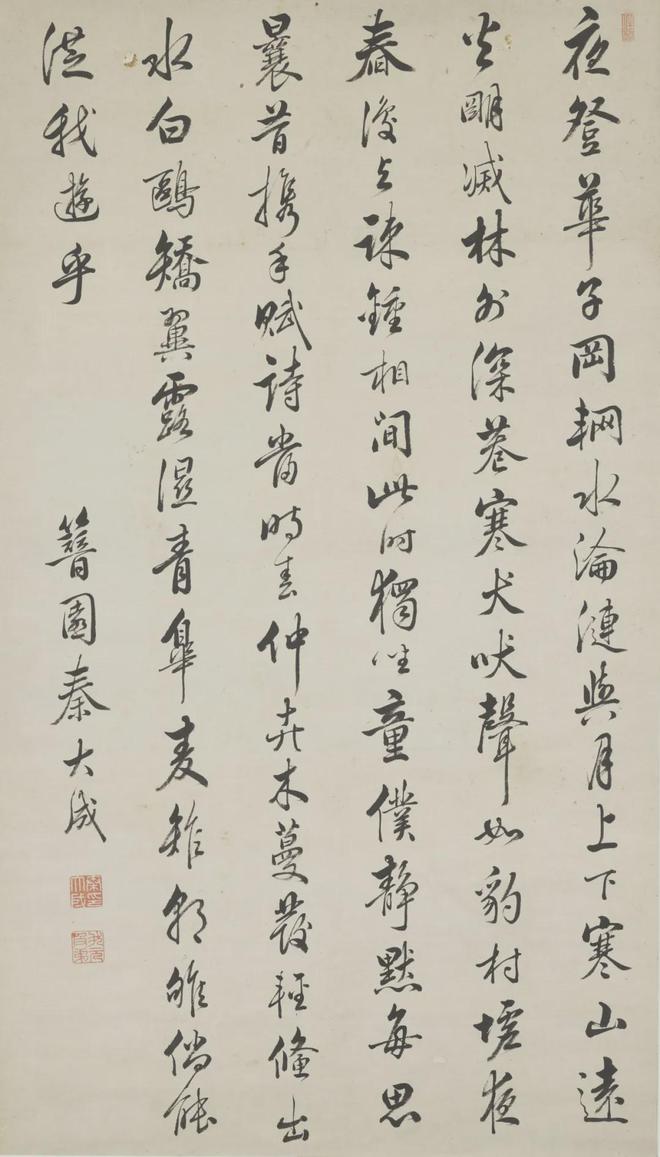 夜登華子岡輞水淪漣與月上下寒山遠
火朙滅林外深巷寒犬吠聲如豹村墟夜
舂復与疎鐘相間此时獨坐童僕靜默每思
曩昔攜手賦詩當時春仲卉木蔓發輕鯈出
水白鷗矯翼露濕青皋麥雉朝雊倘能
從我遊乎
簪園秦大成